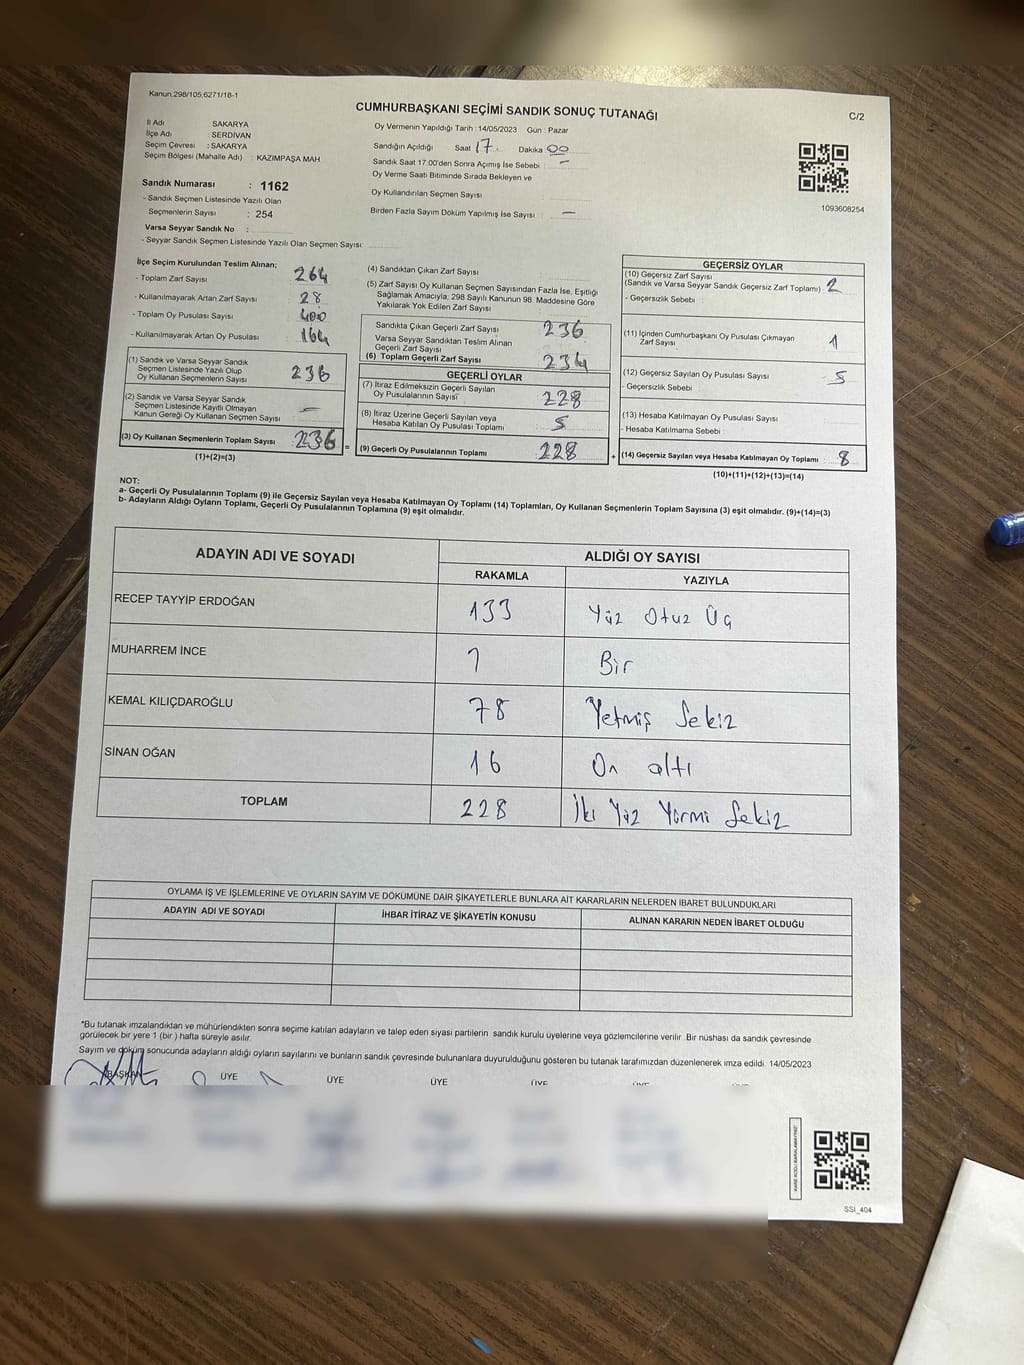 Kanun:298/105;6271/18-1
CUMHURBAŞKANI SEÇİMİ SANDIK SONUÇ TUTANAĞI
C/2
İl Adı SAKARYA
İlçe Adı : SERDİVAN
Seçim Çevresi : SAKARYA
Seçim Bölgesi (Mahalle Adı) : KAZIMPAŞA MAH
Sandık Numarası : 1162
- Sandık Seçmen Listesinde Yazılı Olan
Seçmenlerin Sayısı : 254
Varsa Seyyar Sandık No :
- Seyyar Sandık Seçmen Listesinde Yazılı Olan Seçmen Sayısı:
Oy Vermenin Yapıldığı Tarih : 14/05/2023 Gün : Pazar
Sandığın Açıldığı Saat 17 Dakika 00
Sandık Saat 17:00'den Sonra Açımış İse Sebebi : -
Oy Verme Saati Bitiminde Sırada Bekleyen ve
Oy Kullandırılan Seçmen Sayısı
Birden Fazla Sayım Döküm Yapılmış İse Sayısı : -
1093608254
İlçe Seçim Kurulundan Teslim Alınan;
- Toplam Zarf Sayısı 264
- Kullanılmayarak Artan Zarf Sayısı 28
- Toplam Oy Pusulası Sayısı 400
- Kullanılmayarak Artan Oy Pusulası 164
(1) Sandık ve Varsa Seyyar Sandık
Seçmen Listesinde Yazılı Olup
Oy Kullanan Seçmenlerin Sayısı 236
(2) Sandık ve Varsa Seyyar Sandık
Seçmen Listesinde Kayıtlı Olmayan
Kanun Gereği Oy Kullanan Seçmen Sayısı -
(3) Oy Kullanan Seçmenlerin Toplam Sayısı 236 =
(1)+(2)=(3)
(4) Sandıktan Çıkan Zarf Sayısı
(5) Zarf Sayısı Oy Kullanan Seçmen Sayısından Fazla İse, Eşitliği
Sağlamak Amacıyla; 298 Sayılı Kanunun 98. Maddesine Göre
Yakılarak Yok Edilen Zarf Sayısı
Sandıkta Çıkan Geçerli Zarf Sayısı 236
Varsa Seyyar Sandıktan Teslim Alınan
Geçerli Zarf Sayısı
(6) Toplam Geçerli Zarf Sayısı 234
GEÇERLİ OYLAR
(7) İtiraz Edilmeksizin Geçerli Sayılan
Oy Pusulalarının Sayısı 228
(8) İtiraz Üzerine Geçerli Sayılan veya
Hesaba Katılan Oy Pusulası Toplamı 5
(9) Geçerli Oy Pusulalarının Toplamı :228 +
GEÇERSİZ OYLAR
(10) Geçersiz Zarf Sayısı
(Sandık ve Varsa Seyyar Sandık Geçersiz Zarf Toplamı) : 2
- Geçersizlik Sebebi :
(11) İçinden Cumhurbaşkanı Oy Pusulası Çıkmayan
Zarf Sayısı 1
(12) Geçersiz Sayılan Oy Pusulası Sayısı 5
- Geçersizlik Sebebi :
(13) Hesaba Katılmayan Oy Pusulası Sayısı
- Hesaba Katılmama Sebebi :
(14) Geçersiz Sayılan veya Hesaba Katılmayan Oy Toplamı : 8
(10)+(11)+(12)+(13)=(14)
NOT:
a- Geçerli Oy Pusulalarının Toplamı (9) ile Geçersiz Sayılan veya Hesaba Katılmayan Oy Toplamı (14) Toplamları, Oy Kullanan Seçmenlerin Toplam Sayısına (3) eşit olmalıdır. (9)+(14)=(3)
b- Adayların Aldığı Oyların Toplamı, Geçerli Oy Pusulalarının Toplamına (9) eşit olmalıdır.
ADAYIN ADI VE SOYADI ALDIĞI OY SAYISI
RAKAMLA YAZIYLA
RECEP TAYYİP ERDOĞAN 133 Yüz Otuz Üç
MUHARREM İNCE 1 Bir
KEMAL KILIÇDAROĞLU 78 Yetmiş Sekiz
SİNAN OĞAN 16 On altı
TOPLAM 228 İki Yüz Yirmi Sekiz
OYLAMA İŞ VE İŞLEMLERİNE VE OYLARIN SAYIM VE DÖKÜMÜNE DAİR ŞİKAYETLERLE BUNLARA AİT KARARLARIN NELERDEN İBARET BULUNDUKLARI
ADAYIN ADI VE SOYADI İHBAR İTİRAZ VE ŞİKAYETİN KONUSU ALINAN KARARIN NEDEN İBARET OLDUĞU
*Bu tutanak imzalandıktan ve mühürlendikten sonra seçime katılan adayların ve talep eden siyasi partilerin sandık kurulu üyelerine veya gözlemcilerine verilir. Bir nüshası da sandık çevresinde
görülecek bir yere 1 (bir ) hafta süreyle asılır.
Sayım ve döküm sonucunda adayların aldığı oyların sayılarını ve bunların sandık çevresinde bulunanlara duyurulduğunu gösteren bu tutanak tarafımızdan düzenlenerek imza edildi. 14/05/2023
BAŞKAN ÜYE ÜYE ÜYE ÜYE
SSI_404